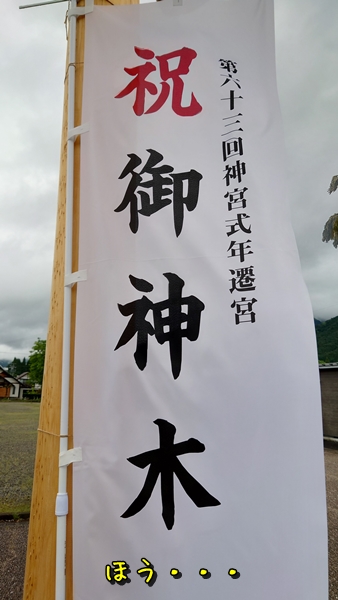 第六十三回神宮式年遷宮
祝御神木
ほう・・・